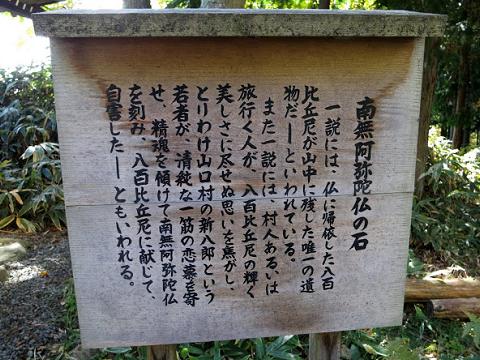 南無阿弥陀仏の石
一説には、仏に帰依した八百
比丘尼が山中に残した唯一の遺
物だ――といわれている。
また一説には、村人あるいは
旅行く人が、八百比丘尼の輝く
美しさに尽せぬ思いを焦がし、
とりわけ山口村の新八郎という
若者が、清純な一筋の恋慕を寄
せ、精魂を傾けて南無阿弥陀仏
を刻み、八百比丘尼に献じて、
自害した――ともいわれる。